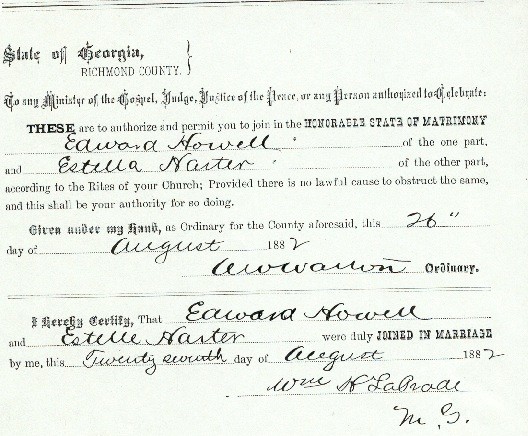 State of Georgia,
RICHMOND COUNTY.
To any Minister of the Gospel, Judge, Justice of the Peace, or any Person authorized to Celebrate:
THESE are to authorize and permit you to join in the HONORABLE STATE OF MATRIMONY
Edward Howell of the one part,
and Estella Harter of the other part,
according to the Rites of your Church; Provided there is no lawful cause to obstruct the same,
and this shall be your authority for so doing.
Given under my Hand, as Ordinary for the County aforesaid, this 26"
day of August 1882
Ordinary.
I Hereby Certify, That Edward Howell
and Estelle Harter were duly JOINED IN MARRIAGE
by me, this Twenty seventh day of August 1882
Wm H LaPrade
M. G.